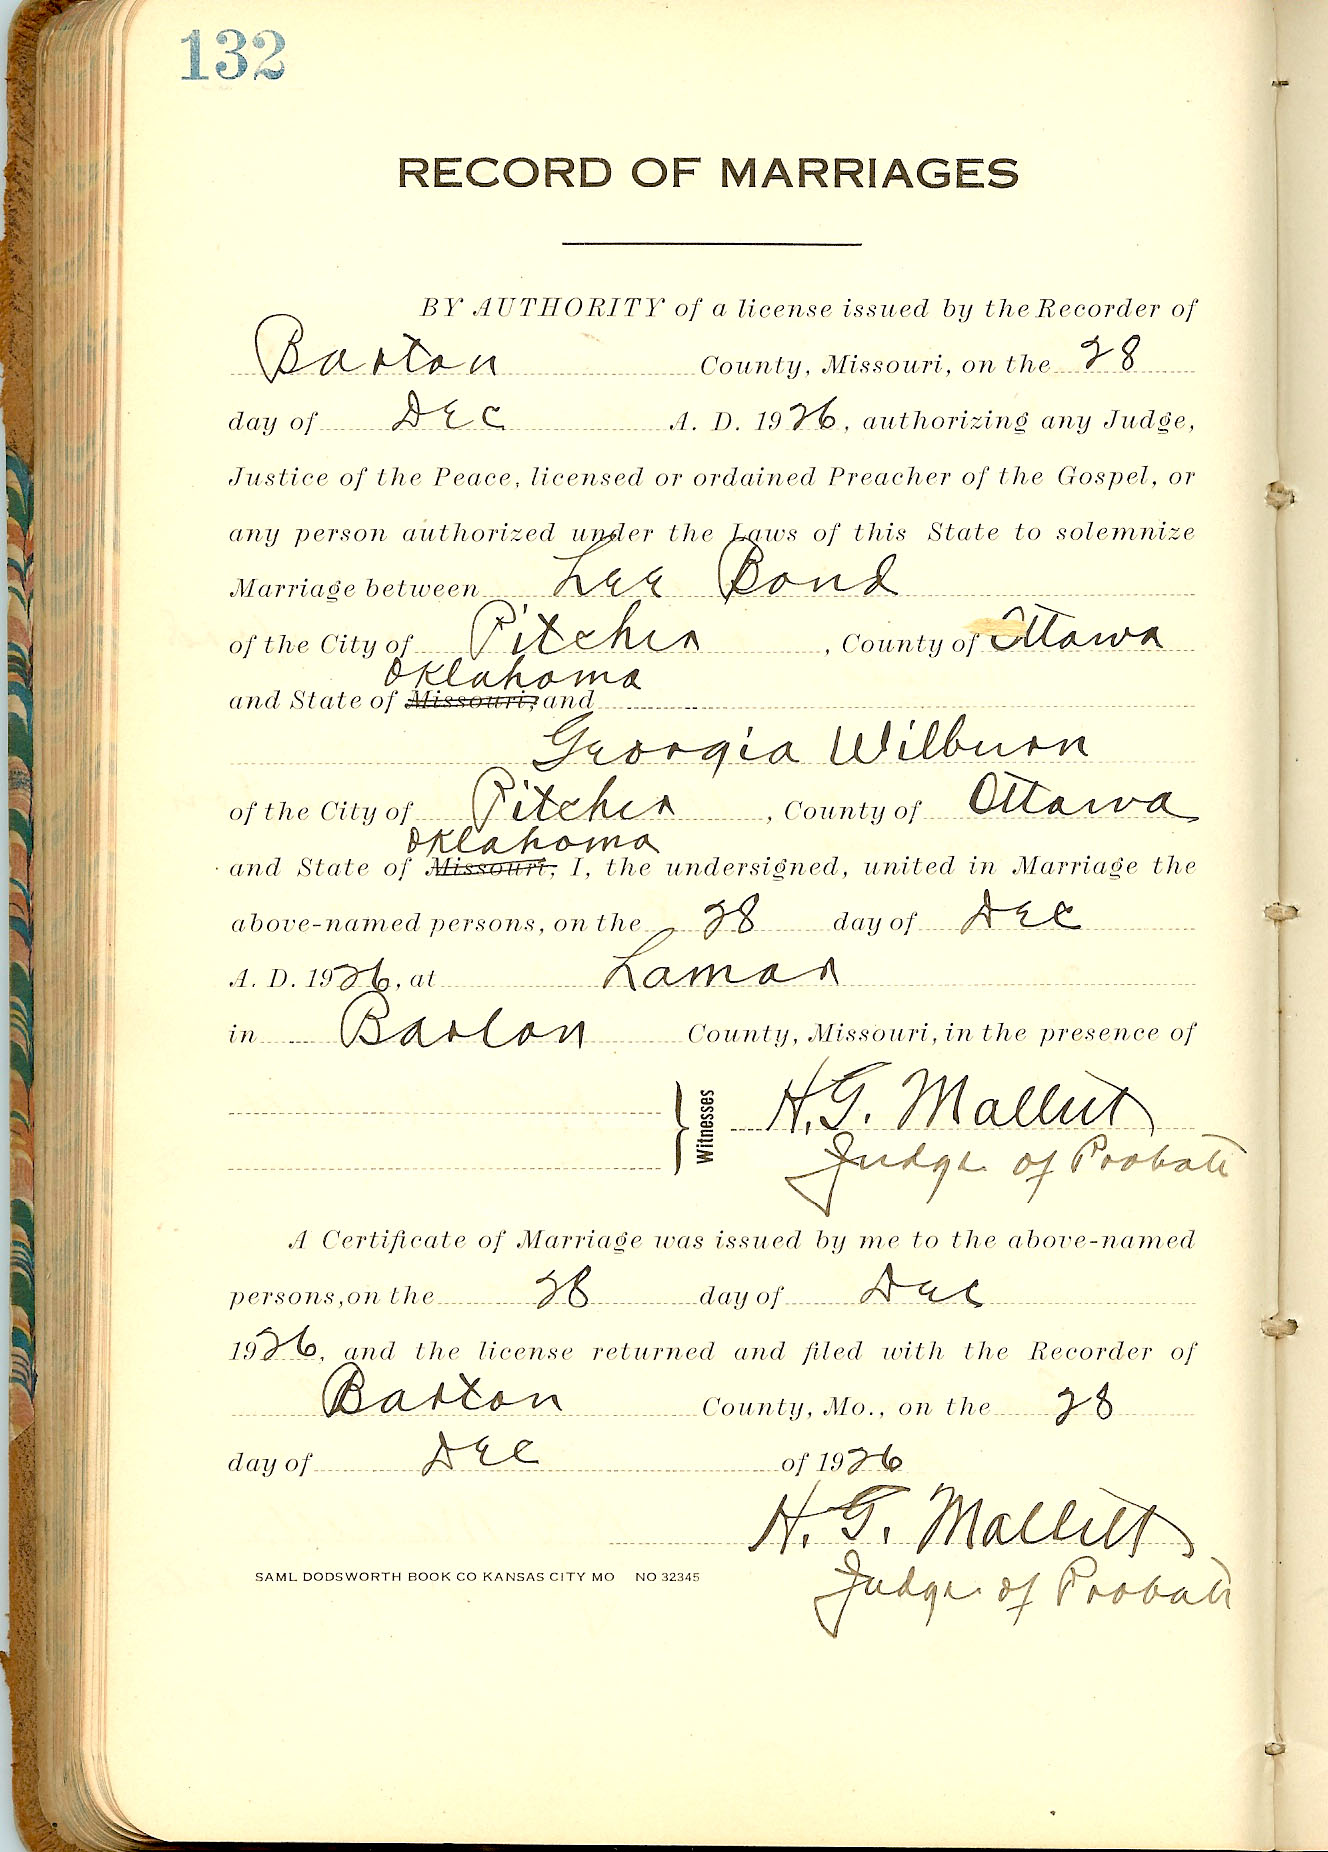 132
RECORD OF MARRIAGES
BY AUTHORITY of a license issued by the Recorder of
Barton County, Missouri, on the 28
day of Dec A. D. 1926, authorizing any Judge,
Justice of the Peace, licensed or ordained Preacher of the Gospel, or
any person authorized under the Laws of this State to solemnize
Marriage between Lee Bond
of the City of Pitcher, County of Ottawa
Oklahoma
and State of Missouri, and
Georgia Wilburn
of the City of Pitcher, County of Ottawa
Oklahoma
and State of Missouri, I, the undersigned, united in Marriage the
above-named persons, on the 28 day of Dec
A. D. 1926, at Lamar
in Barton County, Missouri, in the presence of
Witnesses H. G. Mallitt
Judge of Probate
A Certificate of Marriage was issued by me to the above-named
persons, on the 28 day of Dec
1926, and the license returned and filed with the Recorder of
Barton County, Mo., on the 28
day of Dec of 1926
H. G. Mallitt
Judge of Probate
SAML DODSWORTH BOOK CO KANSAS CITY MO NO 32345